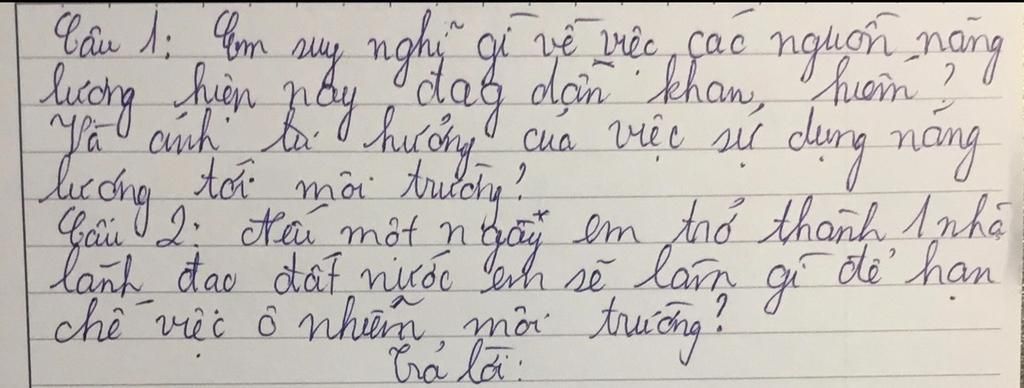 Câu 1: Em suy nghĩ gì về việc các nguồn năng
lượng hiện nay đag dần khan hiếm?
Và ảnh hưởng của việc sử dụng năng
lượng tới môi trường?
Câu 2: Nếu một ngày em trở thành 1 nhà
lãnh đạo đất nước em sẽ làm gì để hạn
chế việc ô nhiễm môi trường?
Trả lời: